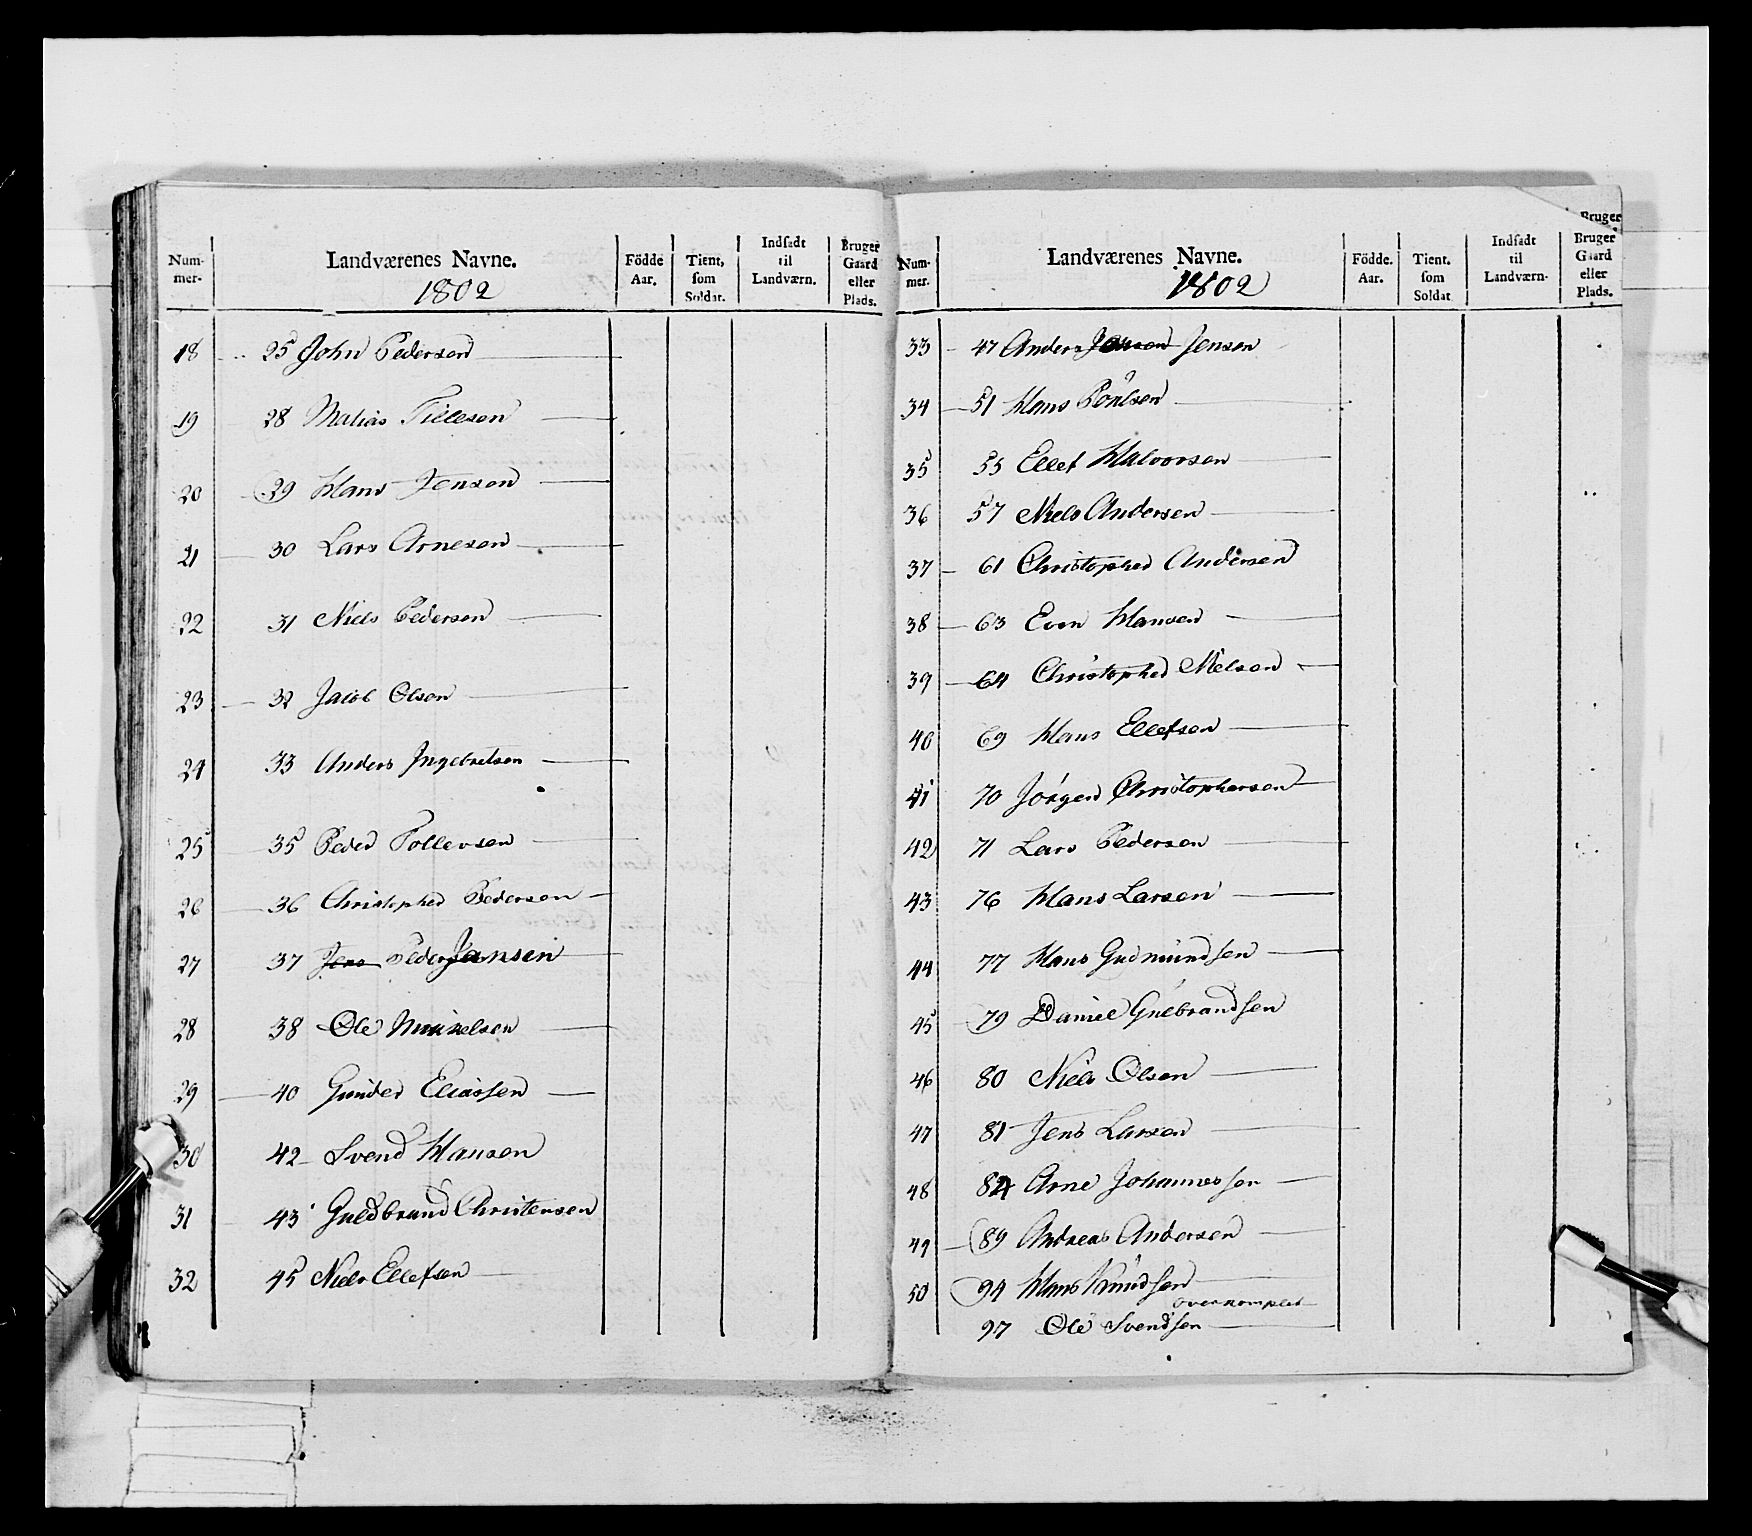 Num-
mer-
Landværenes Navne.
1802
Födde
Aar.
Tient,
som
Soldat.
Indsadt
til
Landværn.
Bruger
Gaard
eller
Plads.
18 25 John Pedersen
19 28 Matias Tillesen
20 29 Hans Jensen
21 30 Lars Arnesen
22 31 Niels Pedersen
23 32 Jacob Olsen
24 33 Anders Ingebretsen
25 35 Peder Tollevsen
26 36 Christopher Pedersen
27 37 Jens Peder Jansen
28 38 Ole Mikkelsen
29 40 Gunder Eliassen
30 42 Svend Hansen
31 43 Guldbrand Christensen
32 45 Niels Ellefsen
Bruger
Num-
mer.
Landværenes Navne.
1802
Födde.
Aar.
Tient.
som
Soldat
Indsadt
til
Landværn-
Bruger
Gaard
eller
Plads.
33 47 Anders Jensen Jensen
34 51 Hans Poulsen
35 55 Ellef Halvorsen
36 57 Niels Andersen
37 61 Christopher Andersen
38 63 Even Hansen
39 64 Christopher Nielsen
40 69 Hans Ellefsen
41 70 Jörgen Christophersen
42 71 Lars Pedersen
43 76 Hans Larsen
44 77 Hans Gudmundsen
45 79 Daniel Gulbrandsen
46 80 Niels Olsen
47 81 Jens Larsen
48 84 Arne Johannessen
49 89 Andreas Andersen
50 94 Hans Knudsen
overkomplet
97 Ole Svendsen